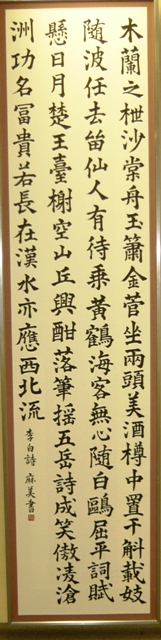 木蘭之枻沙棠舟玉簫金管坐兩頭美酒樽中置千斛載妓
隨波任去留仙人有待乘黃鶴海客無心隨白鷗屈平詞賦
懸日月楚王臺榭空山丘興酣落筆搖五岳詩成笑傲凌滄
洲功名冨貴若長在漢水亦應西北流
李白詩 麻美書